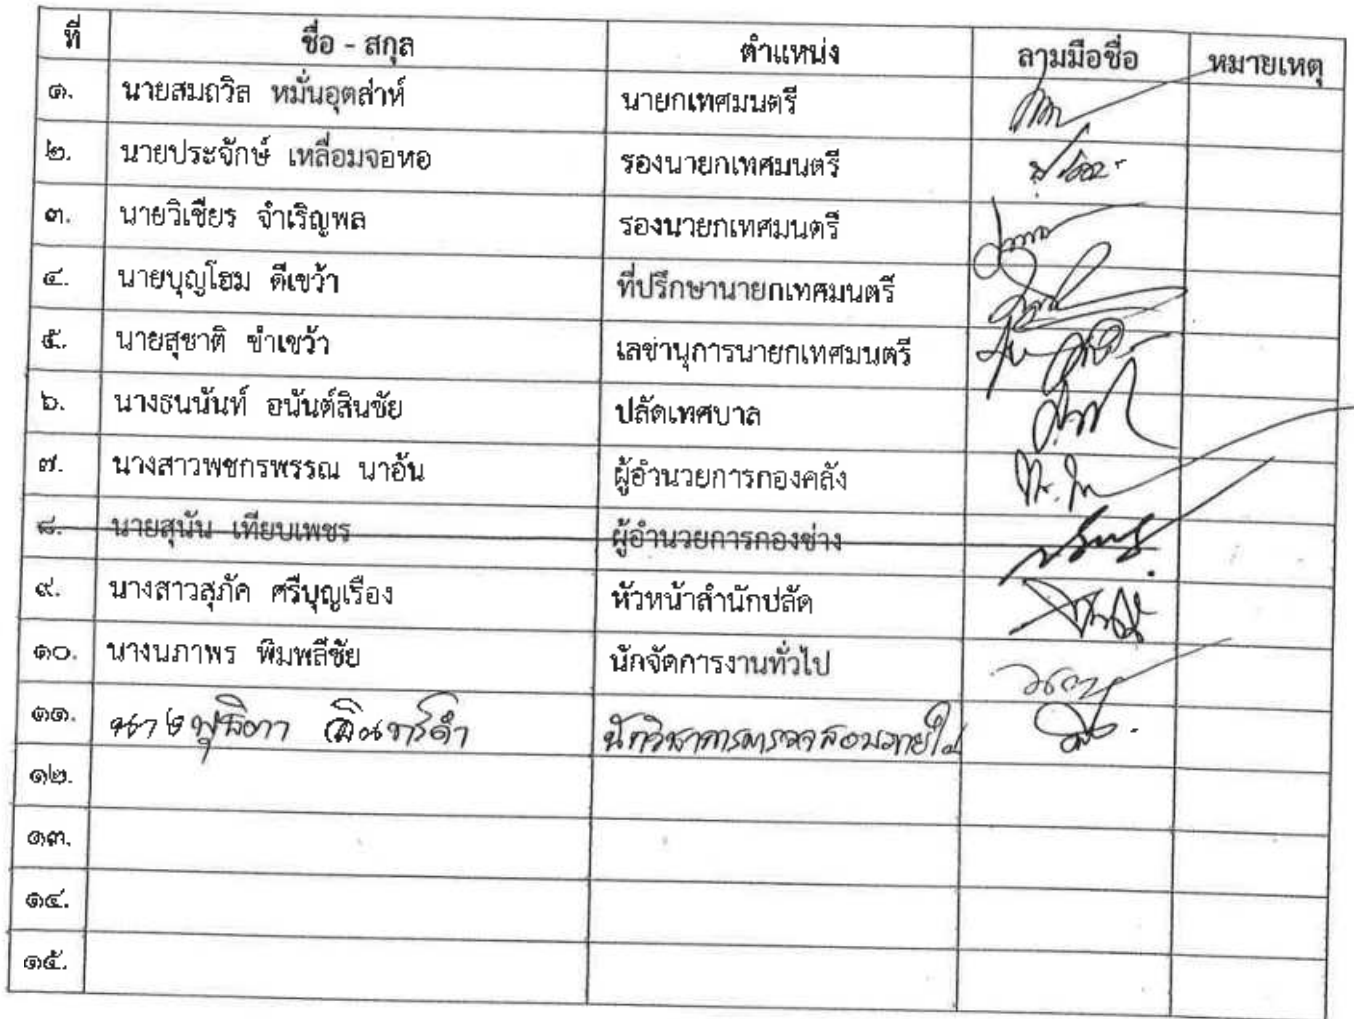 ที่ ชื่อ - สกุล ตำแหน่ง ลามมือชื่อ หมายเหตุ
๑. นายสมถวิล หมั่นอุตส่าห์ นายกเทศมนตรี
๒. นายประจักษ์ เหลื่อมจอหอ รองนายกเทศมนตรี
๓. นายวิเชียร จำเริญพล รองนายกเทศมนตรี
๔. นายบุญโฮม ดีเขว้า ที่ปรึกษานายกเทศมนตรี
๕. นายสุชาติ ขำเขว้า เลขานุการนายกเทศมนตรี
๖. นางธนนันท์ อนันต์สินชัย ปลัดเทศบาล
๗. นางสาวพชกรพรรณ นาอ้น ผู้อำนวยการกองคลัง
๘. นายสุนัน เทียบเพชร ผู้อำนวยการกองช่าง
๙. นางสาวสุภัค ศรีบุญเรือง หัวหน้าสำนักปลัด
๑๐. นางนภาพร พิมพลีชัย นักจัดการงานทั่วไป
๑๑. นักวิชาการตรวจสอบภายใน
๑๒.
๑๓.
๑๔.
๑๕.